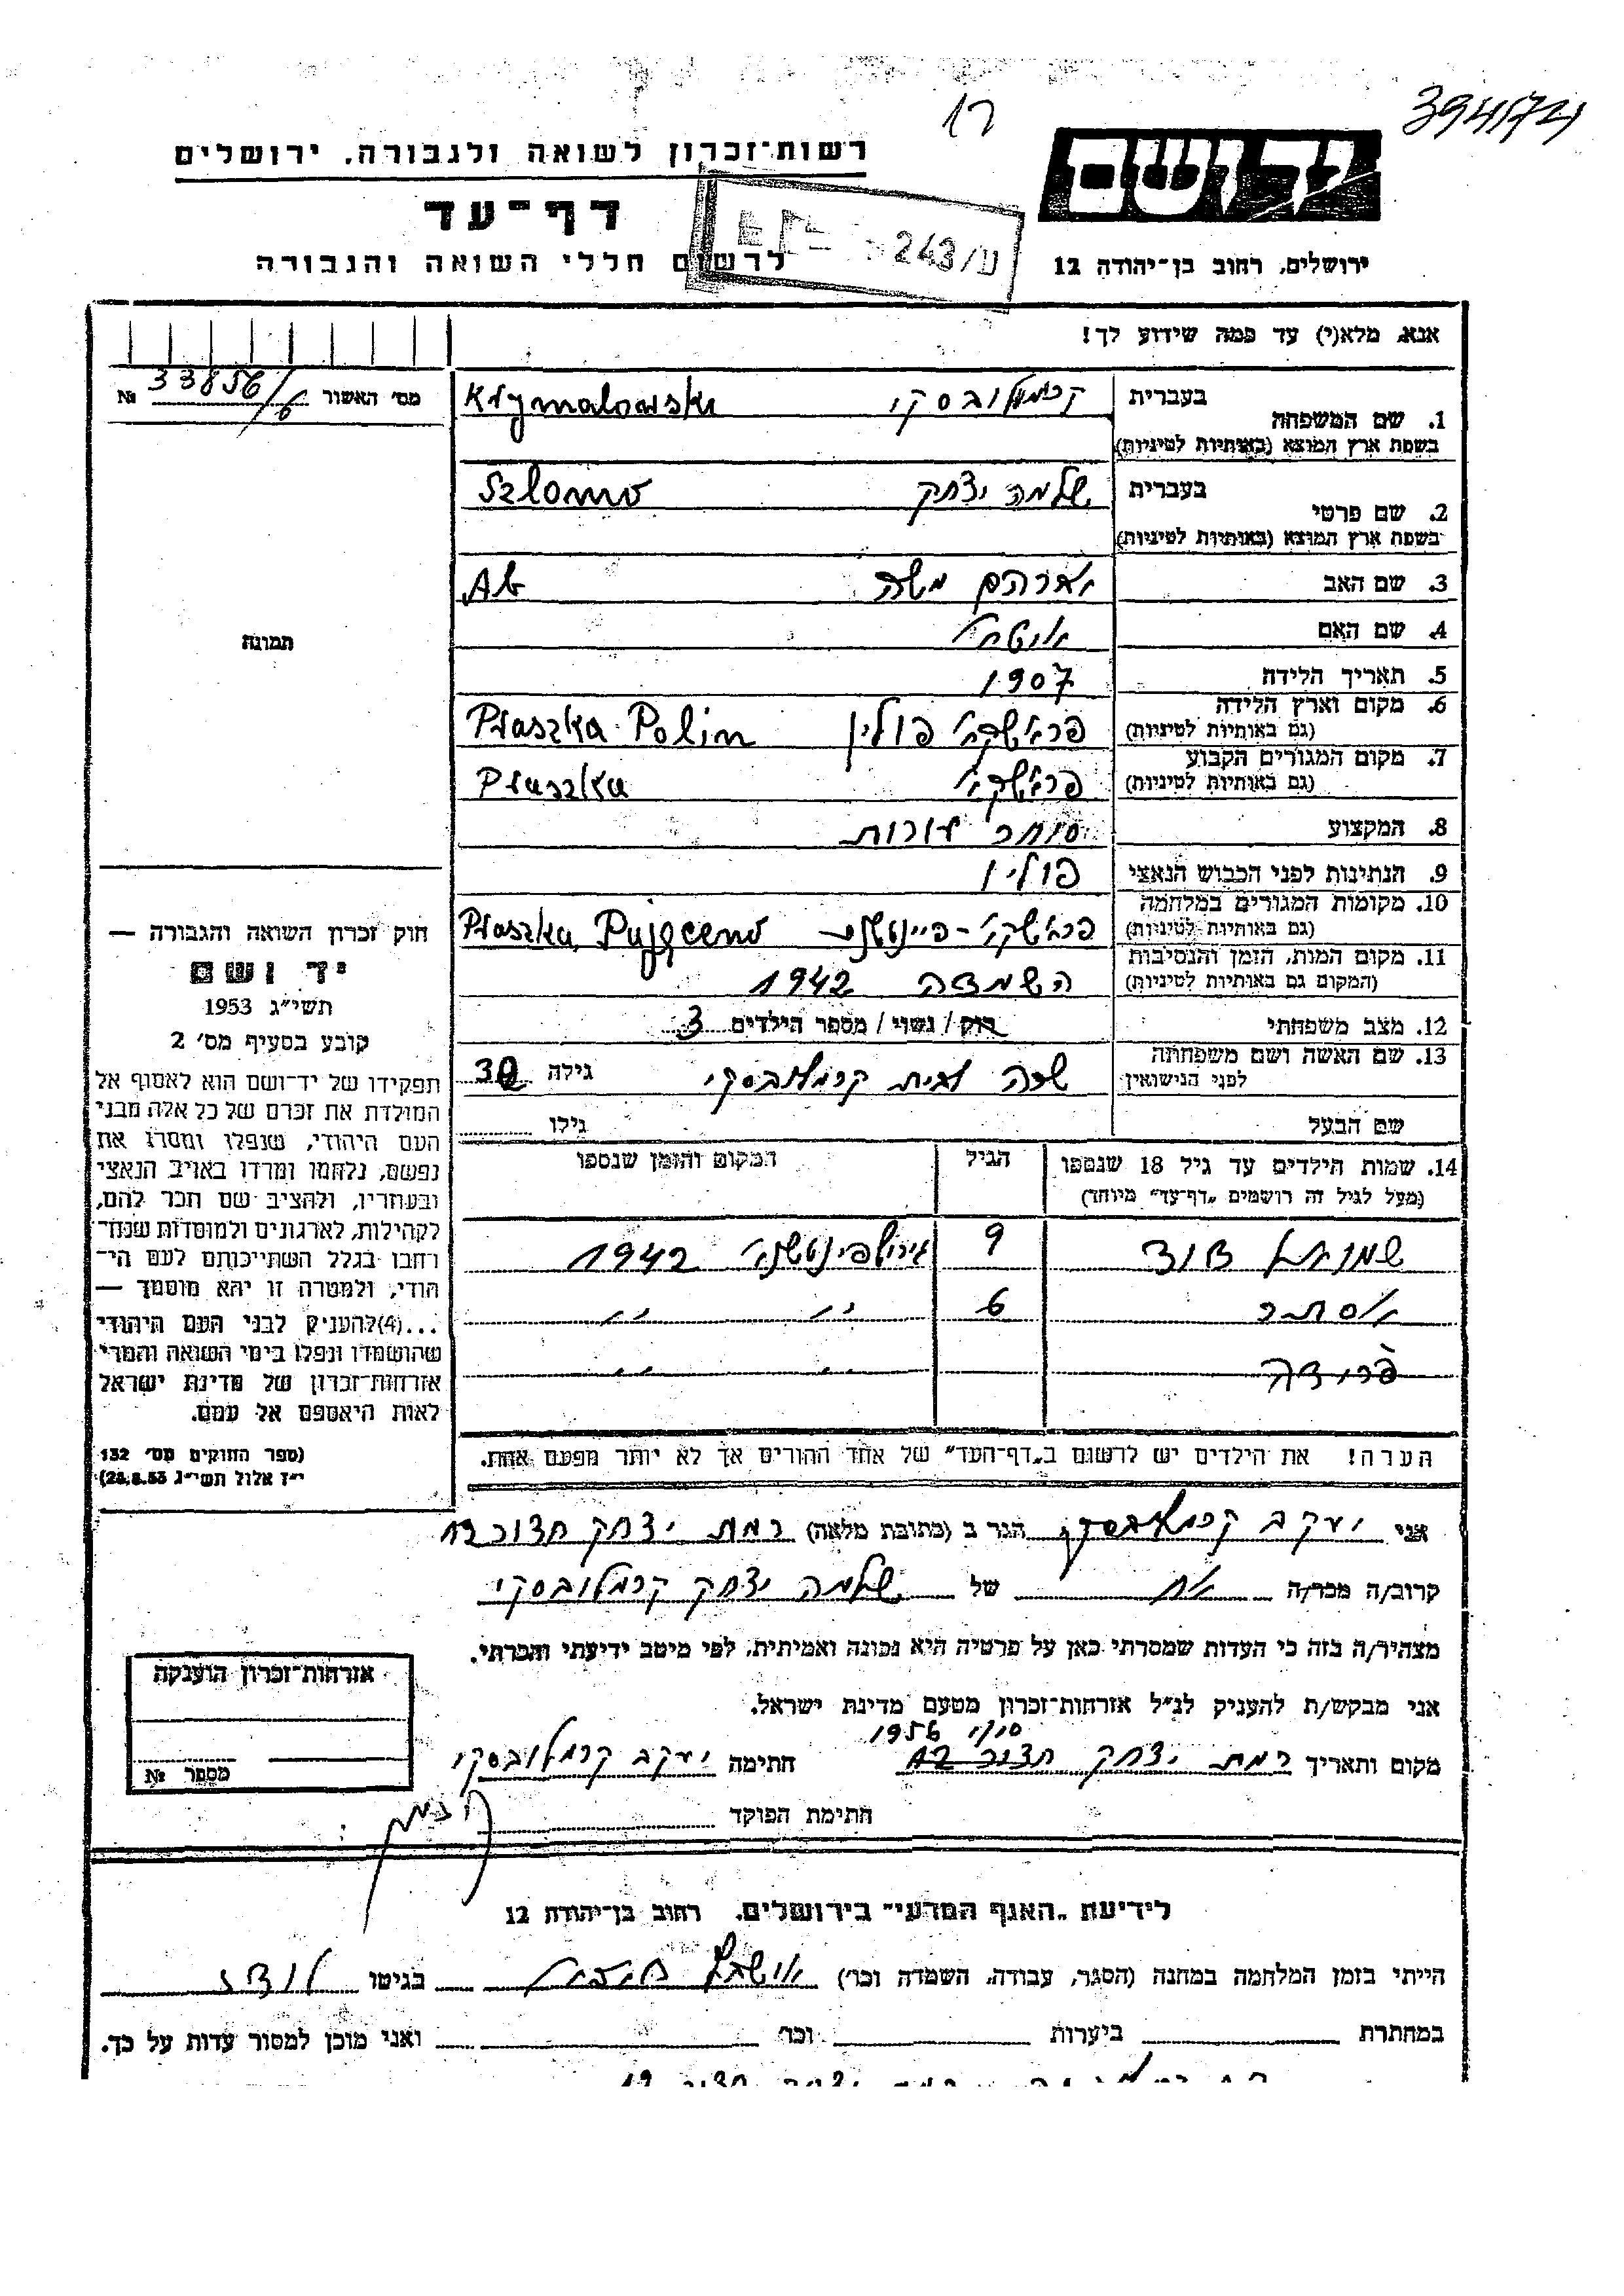 394174
12
רשות־זכרון לשואה ולגבורה, ירושלים
דף־עד
לרשום חללי השואה והגבורה
243/ע
ירושלים, רחוב בן־יהודה 12
אנא, מלא(י) עד כמה שידוע לך!
מס׳ האשור 33856/6 №
1. שם המשפחה
בעברית קרמלובסקי Krymalowski
בשפת ארץ המוצא (באותיות לטיניות)
2. שם פרטי
בעברית שלמה יצחק Szlomo
בשפת ארץ המוצא (באותיות לטיניות)
3. שם האב אברהם משה Ab
4. שם האם
תמונה
5. תאריך הלידה 1907
6. מקום וארץ הלידה פראשקא פולין Praszka Polin
(גם באותיות לטיניות)
7. מקום המגורים הקבוע פראשקא Praszka
(גם באותיות לטיניות)
8. המקצוע סוחר עורות
9. הנתינות לפני הכבוש הנאצי פולין
10. מקומות המגורים במלחמה פראשקא - Praszka
(גם באותיות לטיניות)
11. מקום המות, הזמן והנסיבות השמדה 1942
(המקום גם באותיות לטיניות)
12. מצב משפחתי רוק / נשוי / מספר הילדים 3
13. שם האשה ושם משפחתה שרה קרמלובסקי גילה 30
לפני הנישואין
שם הבעל גילו
14. שמות הילדים עד גיל 18 שנספו הגיל המקום והזמן שנספו
(מעל לגיל זה רושמים „דף־עד” מיוחד)
דוד 9 1942
אסתר 6 ״ ״
פרידה ״ ״
הערה! את הילדים יש לרשום ב„דף־העד” של אחד ההורים אך לא יותר מפעם אחת.
חוק זכרון השואה והגבורה —
יד ושם
תשי״ג 1953
קובע בסעיף מס׳ 2
תפקידו של יד־ושם הוא לאסוף אל
המולדת את זכרם של כל אלה מבני
העם היהודי, שנפלו ומסרו את
נפשם, נלחמו ומרדו באויב הנאצי
ובעוזריו, ולהציב שם וזכר להם,
לקהילות, לארגונים ולמוסדות שנח־
רבו בגלל השתייכותם לעם הי־
הודי, ולמטרה זו יהא מוסמך —
...(4)להעניק לבני העם היהודי
שהושמדו ונפלו בימי השואה והמרי
אזרחות־זכרון של מדינת ישראל
לאות היאספם אל עמם.
(ספר החוקים מס׳ 132
י״ז אלול תשי״ג 28.8.53)
אני יעקב קרמלובסקי הגר ב (כתובת מלאה) רמת יצחק חצור 12
קרוב/ה מכר/ה אח של שלמה יצחק קרמלובסקי
מצהיר/ה בזה כי העדות שמסרתי כאן על פרטיה היא נכונה ואמיתית, לפי מיטב ידיעתי והכרתי.
אני מבקש/ת להעניק לנ״ל אזרחות־זכרון מטעם מדינת ישראל.
1956
מקום ותאריך רמת יצחק חצור 12 חתימה יעקב קרמלובסקי
חתימת הפוקד
אזרחות־זכרון הוענקה
מספר №
לידיעת „האגף המדעי” בירושלים, רחוב בן־יהודה 12
הייתי בזמן המלחמה במחנה (הסגר, עבודה, השמדה וכו׳) בגיטו לודז
במחתרת ביערות וכו׳ ואני מוכן למסור עדות על כך.